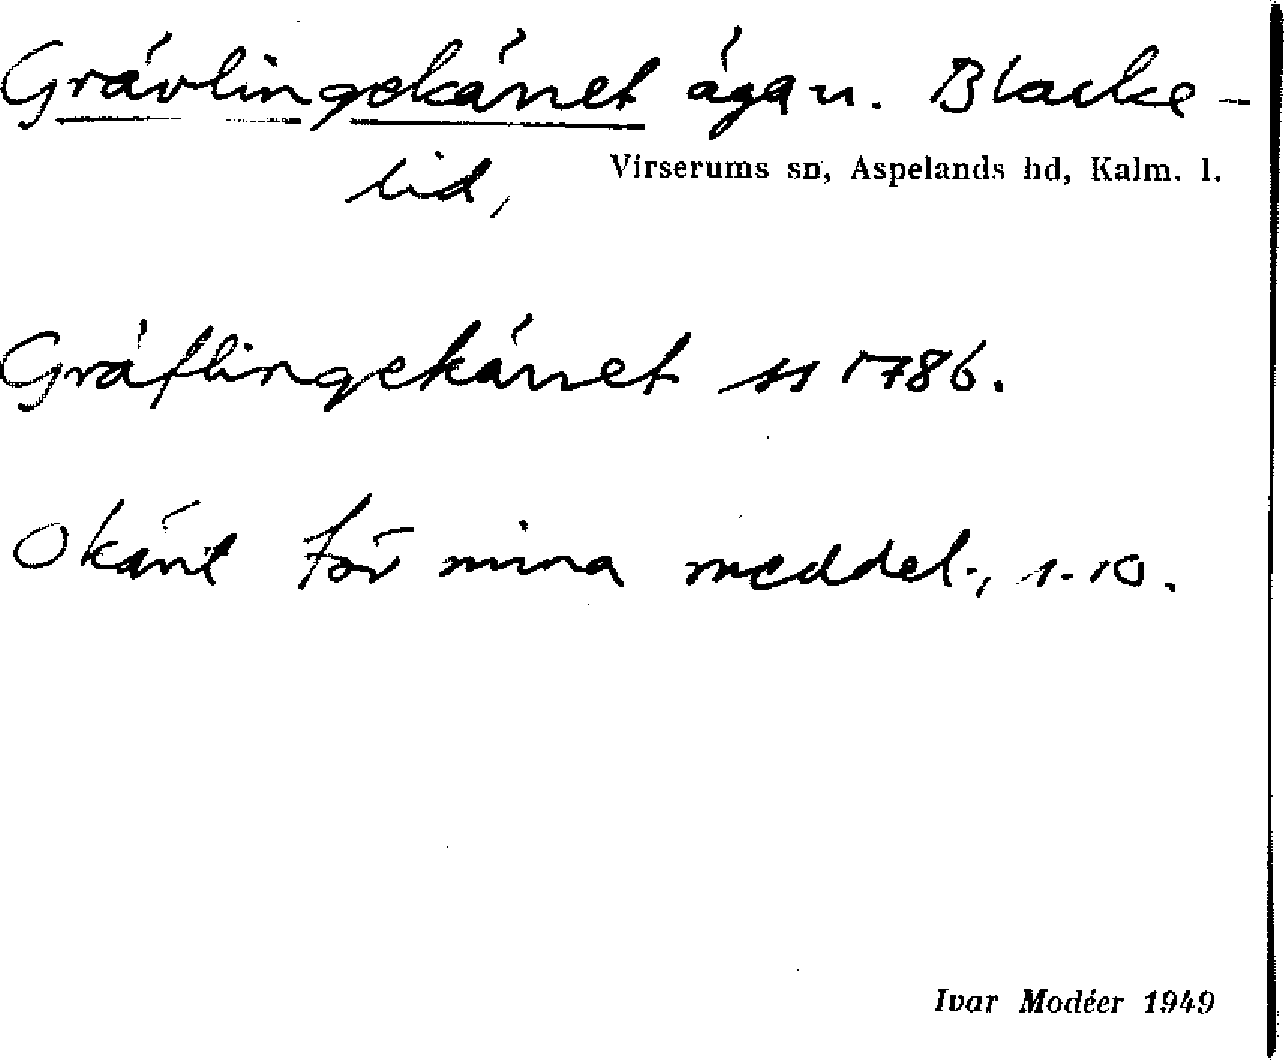 Grävlingekärret ägan. Blacke-
lid,
Virserums sn, Aspelands hd, Kalm. l.
Gräflingekärret ss 1786.
Okänt för mina meddel., 1.10.
Ivar Modéer 1949